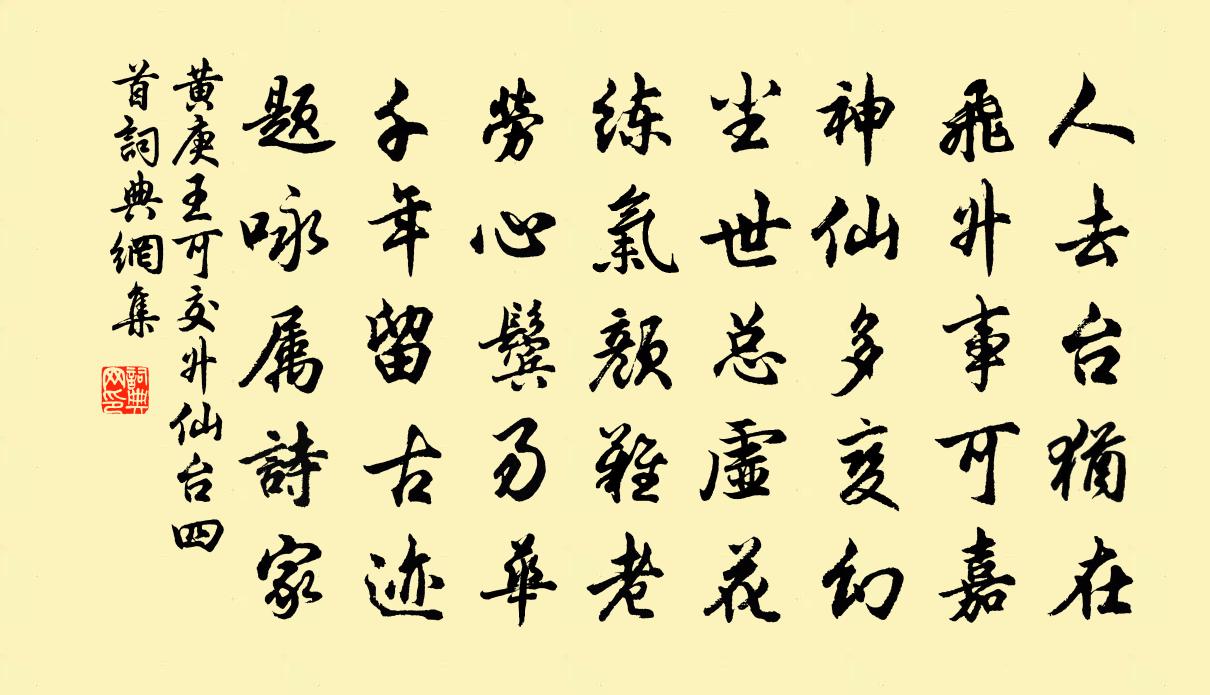 人去台猶在
飛升事可嘉
神仙多变幻
尘世总虛花
练氣顔難老
勞心鬓易華
千年留古迹
题咏属詩家
黄庚王可交升仙台四
首詞典網集
詞典
网印